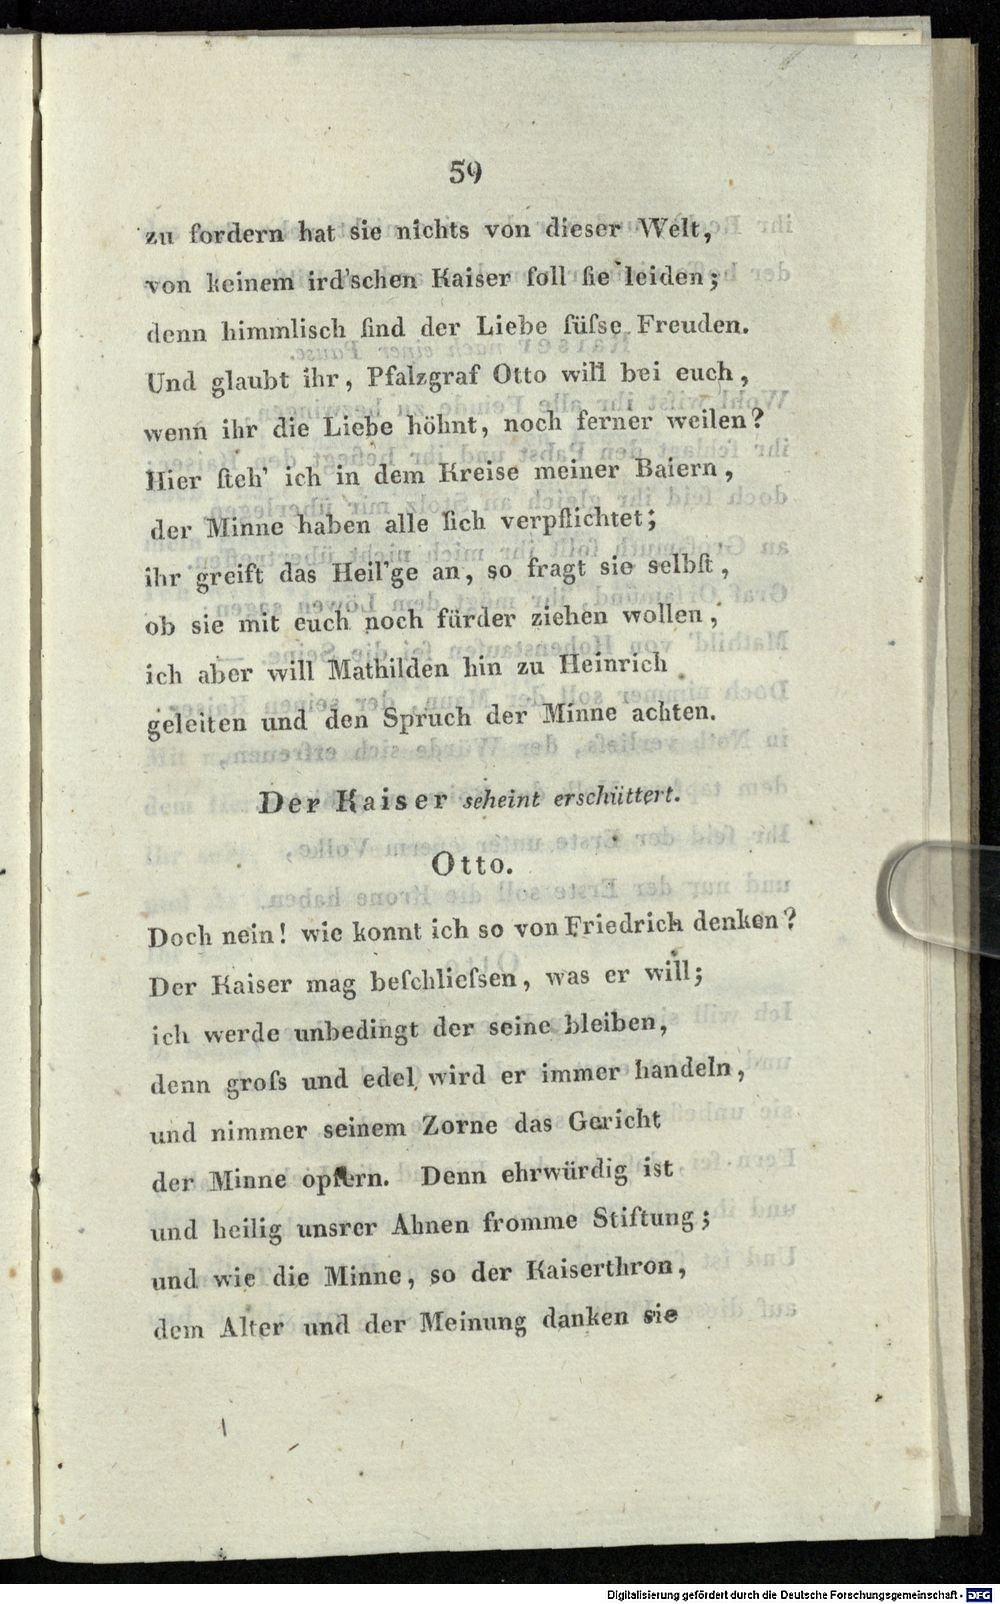 59
zu fordern hat sie nichts von dieser Welt,
von keinem ird'schen Kaiser ſoll ſie leiden;
denn himmlisch ſind der Liebe ſüſse Freuden.
Und glaubt ihr, Pfalzgraf Otto will bei euch,
wenn ihr die Liebe höhnt, noch ferner weilen?
Hier ſteh' ich in dem Kreise meiner Baiern,
der Minne haben alle ſich verpflichtet;
ihr greift das Heil'ge an, so fragt sie selbſt,
ob sie mit euch noch fürder ziehen wollen,
ich aber will Mathilden hin zu Heinrich
geleiten und den Spruch der Minne achten.
Der Kaiser scheint erschüttert.
Otto.
Doch nein! wie konnt ich so von Friedrich denken?
Der Kaiser mag beſchlieſsen, was er will;
ich werde unbedingt der seine bleiben,
denn groſs und edel wird er immer handeln,
und nimmer seinem Zorne das Gericht
der Minne opfern. Denn ehrwürdig ist
und heilig unsrer Ahnen fromme Stiftung;
und wie die Minne, so der Kaiserthron,
dem Alter und der Meinung danken sie
Digitalisierung gefördert durch die Deutsche Forschungsgemeinschaft - DFG